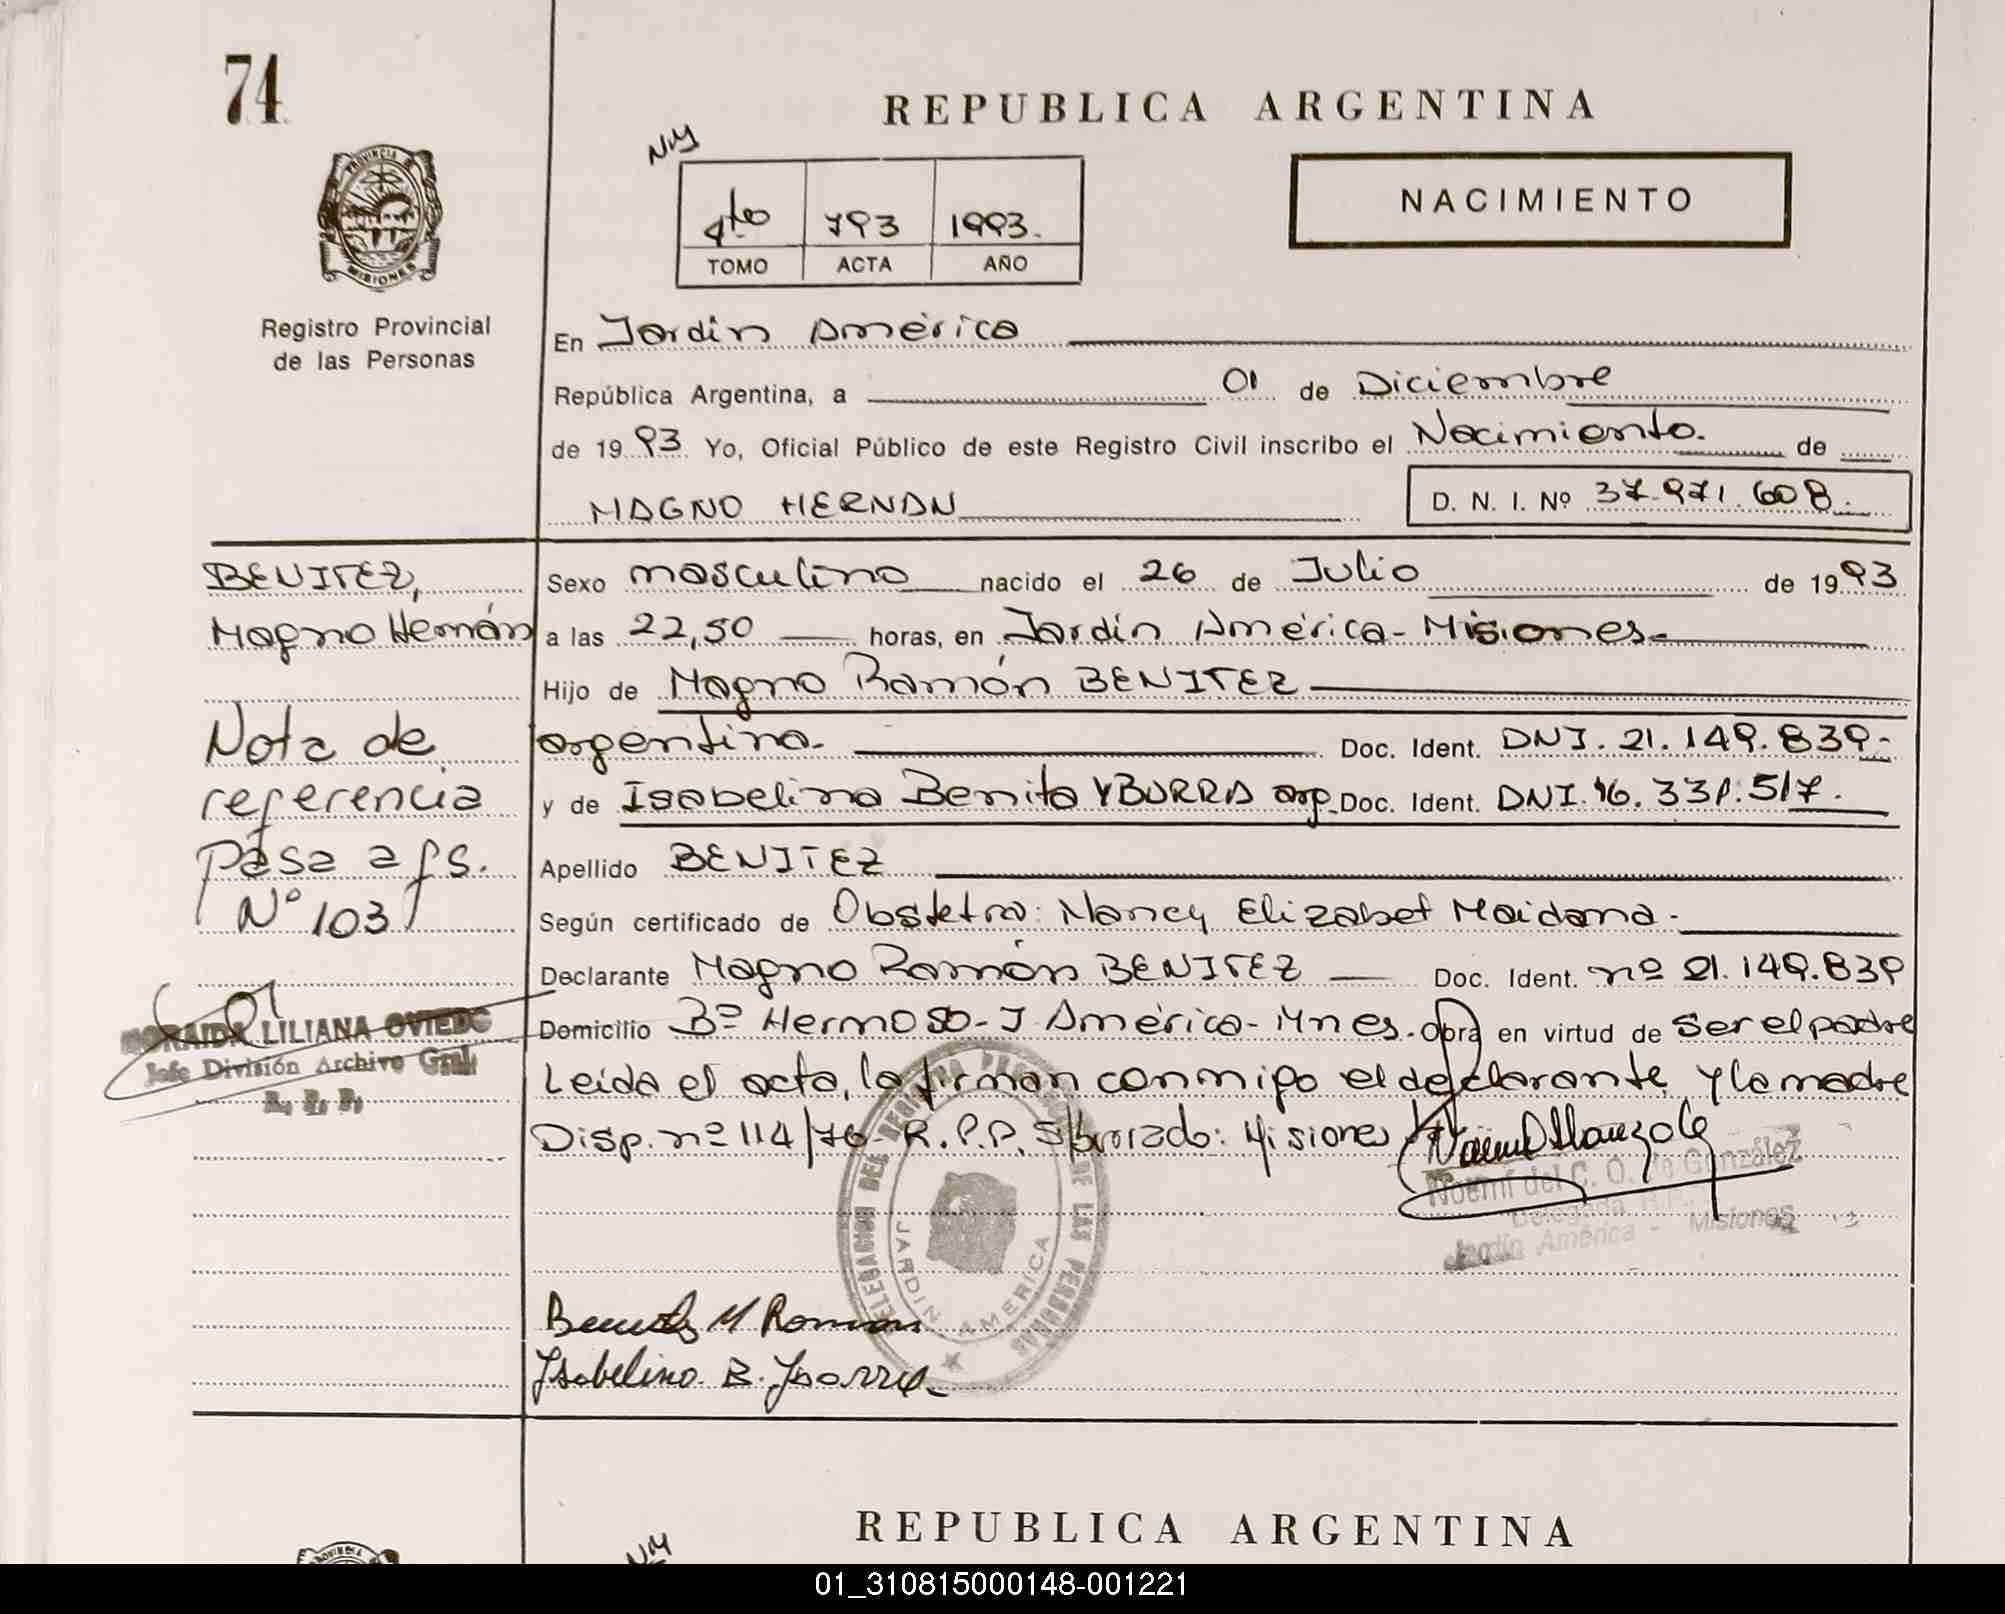 74
REPUBLICA ARGENTINA
NM
4to 793 1993.
TOMO ACTA AÑO
NACIMIENTO
PROVINCIA DE MISIONES
Registro Provincial
de las Personas
En Jardín América
República Argentina, a 01 de Diciembre
de 1993 Yo, Oficial Público de este Registro Civil inscribo el Nacimiento. de
MAGNO HERNAN D. N. I. Nº 37.971.608.
BENITEZ,
Magno Hernán
Sexo masculino nacido el 26 de Julio de 1993
a las 22,50 horas, en Jardín América - Misiones.-
Hijo de Magno Ramón BENITEZ
argentino. Doc. Ident. DNI. 21.149.839.-
y de Isabelina Benita YBURRA arg. Doc. Ident. DNI. 16.331.517.
Apellido BENITEZ
Según certificado de Obstetra: Nancy Elizabet Maidana.
Declarante Magno Ramón BENITEZ Doc. Ident. nº 21.149.839
Domicilio Bº Hermoso - J. América - Mnes. Obra en virtud de ser el padre
Leída el acta, la firman conmigo el declarante y la madre
Disp. nº 114/76 - R.P.P. S/borrado: Misiones
Nota de
referencia
Pasa a fs.
Nº 103
NORAIDA LILIANA OVIEDO
Jefe División Archivo Gral.
R. P. P.
Noemí del C. O. de González
Delegada R.P.
Jardín América - Misiones
DELEGACION DEL REGISTRO PROVINCIAL DE LAS PERSONAS
JARDIN AMERICA
Benitez M Ramon
Isabelina B. Yburra
REPUBLICA ARGENTINA
NM
PROVINCIA
01_310815000148-001221